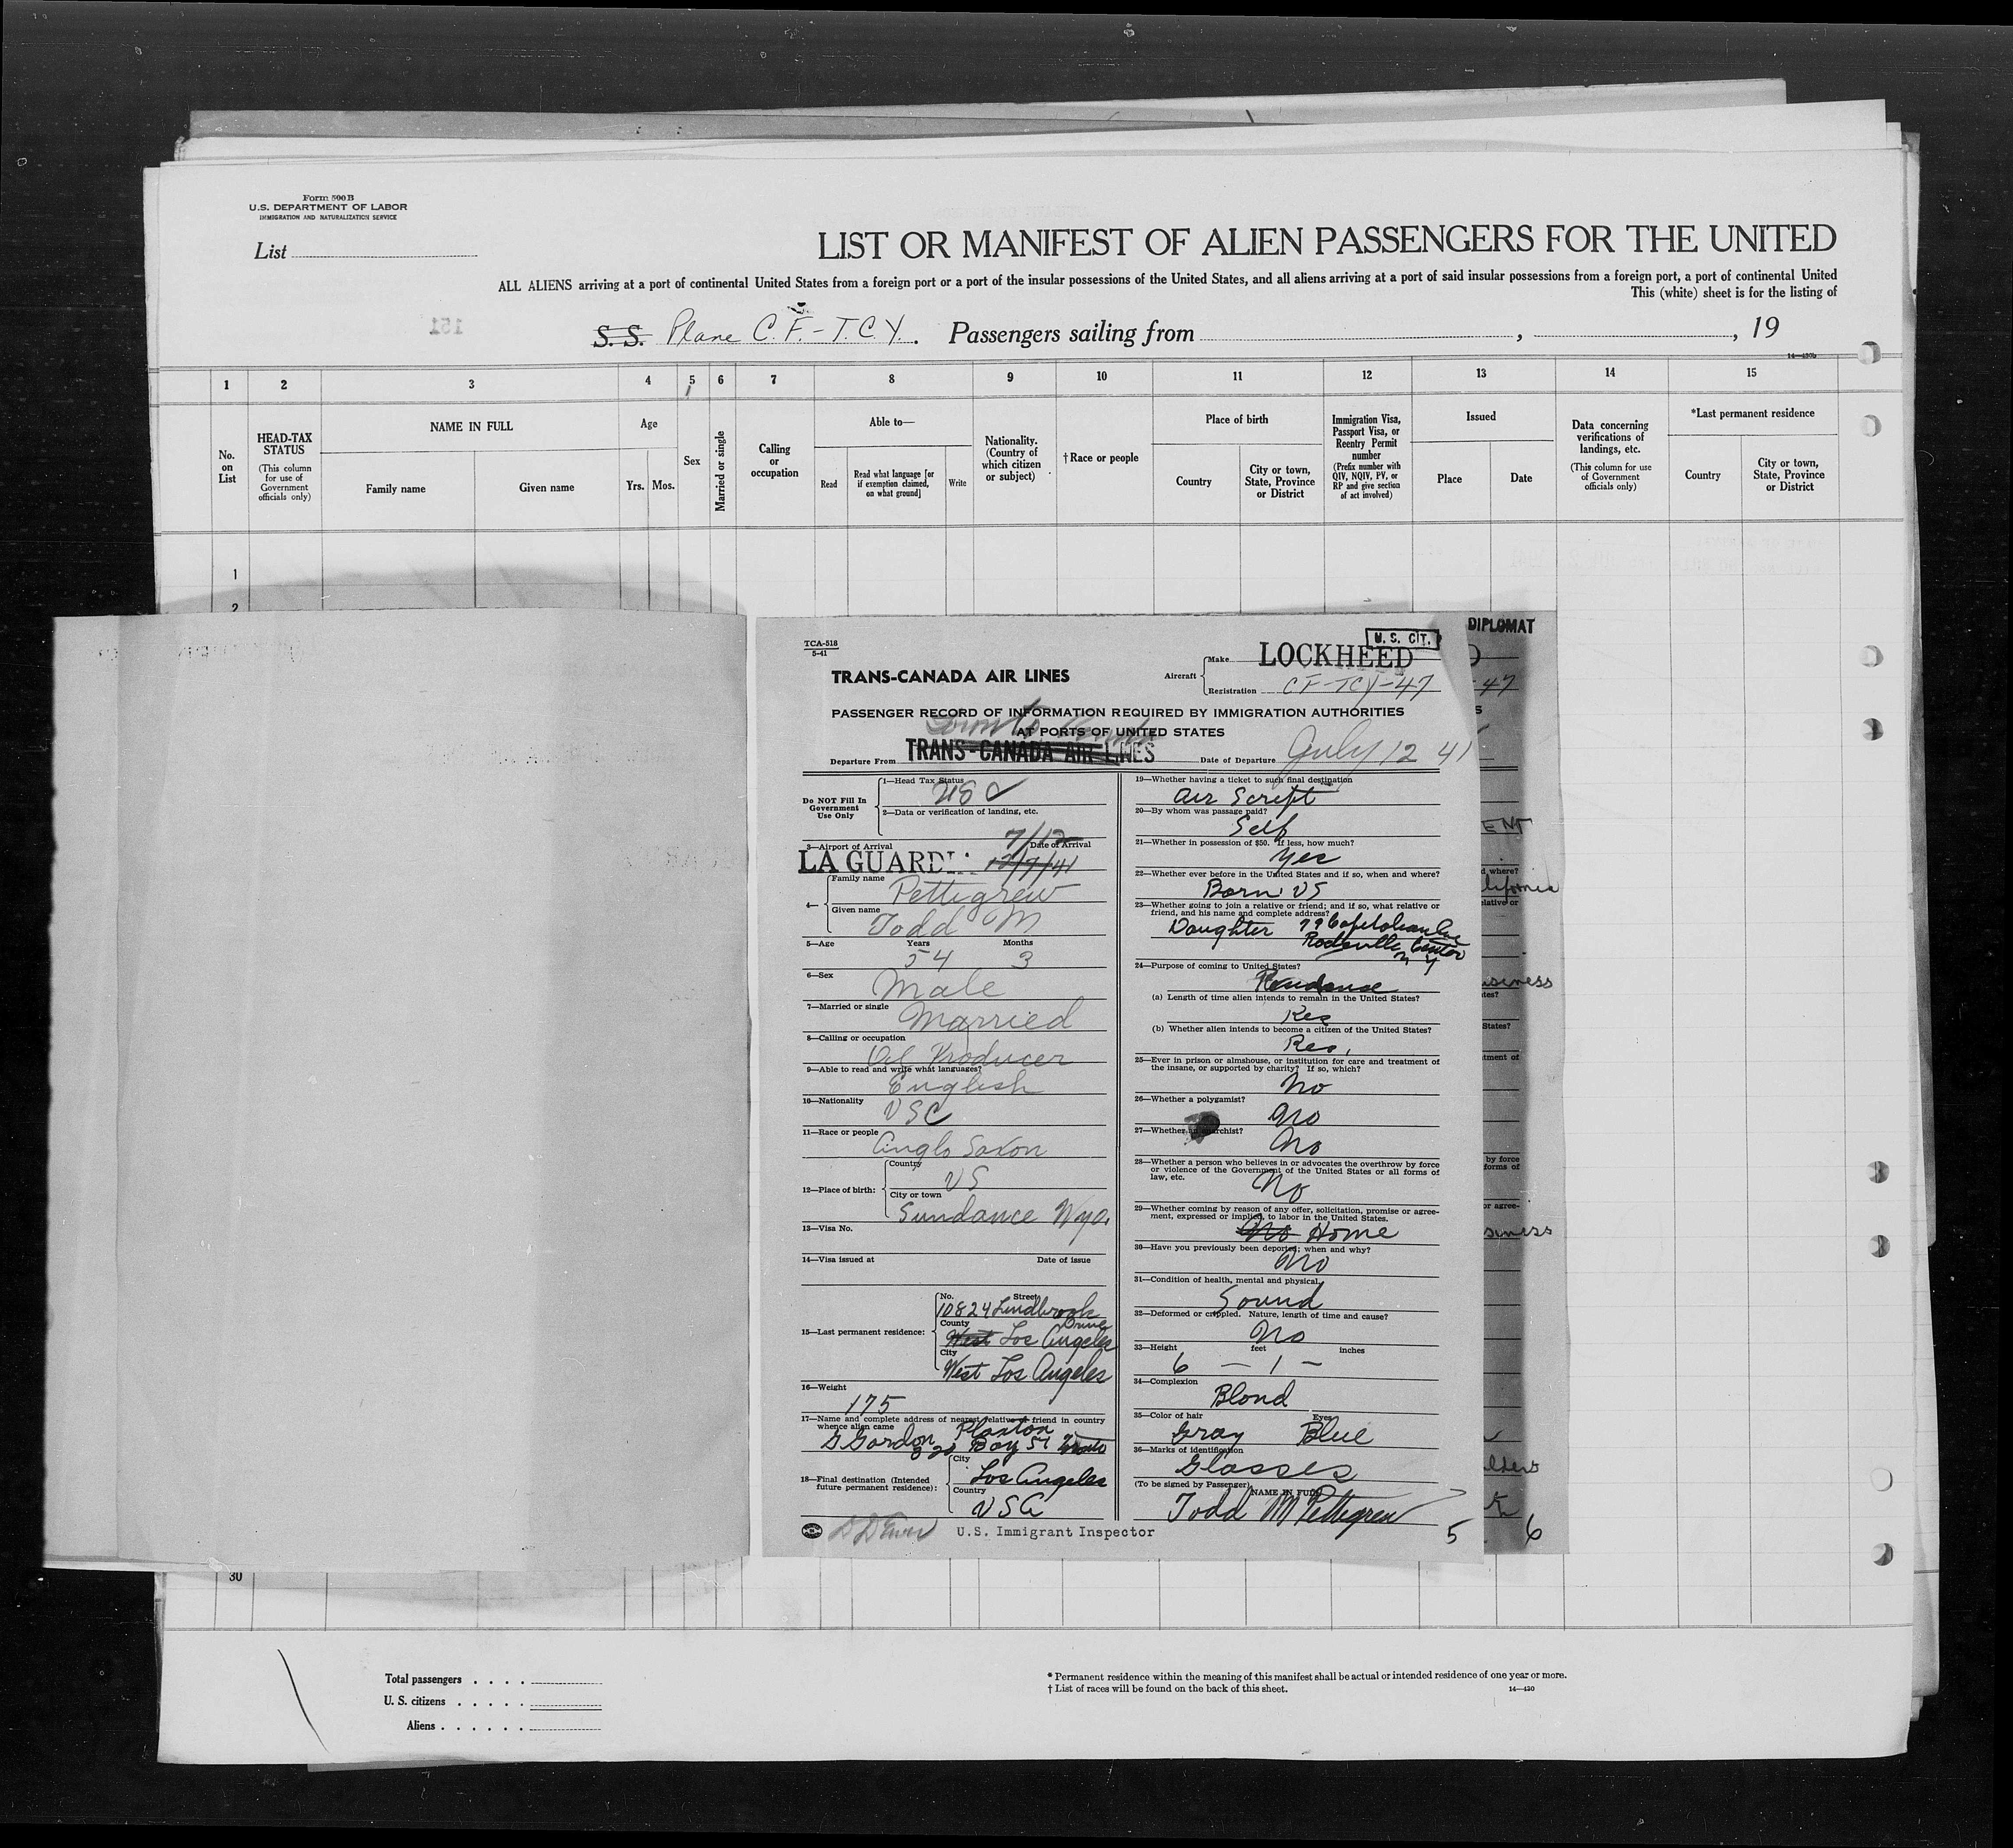 Form 500 B
U.S. DEPARTMENT OF LABOR
IMMIGRATION AND NATURALIZATION SERVICE
List
LIST OR MANIFEST OF ALIEN PASSENGERS FOR THE UNITED
ALL ALIENS arriving at a port of continental United States from a foreign port or a port of the insular possessions of the United States, and all aliens arriving at a port of said insular possessions from a foreign port, a port of continental United
This (white) sheet is for the listing of
151
S. S. Plane C.F.-T.C.Y. Passengers sailing from , , 19
14—430b
1 2 3 4 5 6 7 8 9 10 11 12 13 14 15
No. on List
HEAD-TAX STATUS
(This column for use of Government officials only)
NAME IN FULL
Family name Given name
Age
Yrs. Mos.
Sex
Married or single
Calling or occupation
Able to—
Read
Read what language [or if exemption claimed, on what ground]
Write
Nationality. (Country of which citizen or subject)
†Race or people
Place of birth
Country
City or town, State, Province or District
Immigration Visa, Passport Visa, or Reentry Permit number
(Prefix number with QIV, NQIV, PV, or RP and give section of act involved)
Issued
Place Date
Data concerning verifications of landings, etc.
(This column for use of Government officials only)
*Last permanent residence
Country
City or town, State, Province or District
1
2
TCA-518
5-41
U. S. CIT.
DIPLOMAT
TRANS-CANADA AIR LINES
Aircraft
Make LOCKHEED
Registration CF-TCY-47
PASSENGER RECORD OF INFORMATION REQUIRED BY IMMIGRATION AUTHORITIES
AT PORTS OF UNITED STATES
Toronto
Departure From TRANS-CANADA AIR LINES Date of Departure July 12 41
Do NOT Fill In
Government
Use Only
1—Head Tax Status
USC
2—Data or verification of landing, etc.
3—Airport of Arrival Date of Arrival
7/12
LA GUARDIA 12/7/41
4—
Family name
Pettigrew
Given name
Todd M
5—Age Years Months
54 3
6—Sex
Male
7—Married or single
Married
8—Calling or occupation
Oil Producer
9—Able to read and write what languages?
English
10—Nationality
USC
11—Race or people
Anglo Saxon
12—Place of birth:
Country
US
City or town
Sundance Wyo.
13—Visa No.
14—Visa issued at Date of issue
15—Last permanent residence:
No. Street
10824 Lindbrook
Drive
County
West Los Angeles
City
West Los Angeles
16—Weight
175
17—Name and complete address of nearest relative or friend in country
whence alien came
G Gordon Plaxton
320 Bay St Toronto
18—Final destination (Intended
future permanent residence):
City
Los Angeles
Country
USA
U.S. Immigrant Inspector
19—Whether having a ticket to such final destination
Air Script
20—By whom was passage paid?
Self
21—Whether in possession of $50. If less, how much?
Yes
22—Whether ever before in the United States and if so, when and where?
Born US
23—Whether going to join a relative or friend; and if so, what relative or
friend, and his name and complete address?
Daughter
Rockville Center
N Y
24—Purpose of coming to United States?
Residence
(a) Length of time alien intends to remain in the United States?
Res
(b) Whether alien intends to become a citizen of the United States?
Res.
25—Ever in prison or almshouse, or institution for care and treatment of
the insane, or supported by charity? If so, which?
No
26—Whether a polygamist?
No
27—Whether an anarchist?
No
28—Whether a person who believes in or advocates the overthrow by force
or violence of the Government of the United States or all forms of
law, etc.
No
29—Whether coming by reason of any offer, solicitation, promise or agree-
ment, expressed or implied, to labor in the United States.
No Home
30—Have you previously been deported; when and why?
No
31—Condition of health, mental and physical.
Sound
32—Deformed or crippled. Nature, length of time and cause?
No
33—Height feet inches
6 — 1 —
34—Complexion
Blond
35—Color of hair Eyes
Gray Blue
36—Marks of identification
Glasses
(To be signed by Passenger) NAME IN FULL
Todd M Pettigrew
5
6
30
Total passengers
U. S. citizens
Aliens
* Permanent residence within the meaning of this manifest shall be actual or intended residence of one year or more.
† List of races will be found on the back of this sheet.
14—430